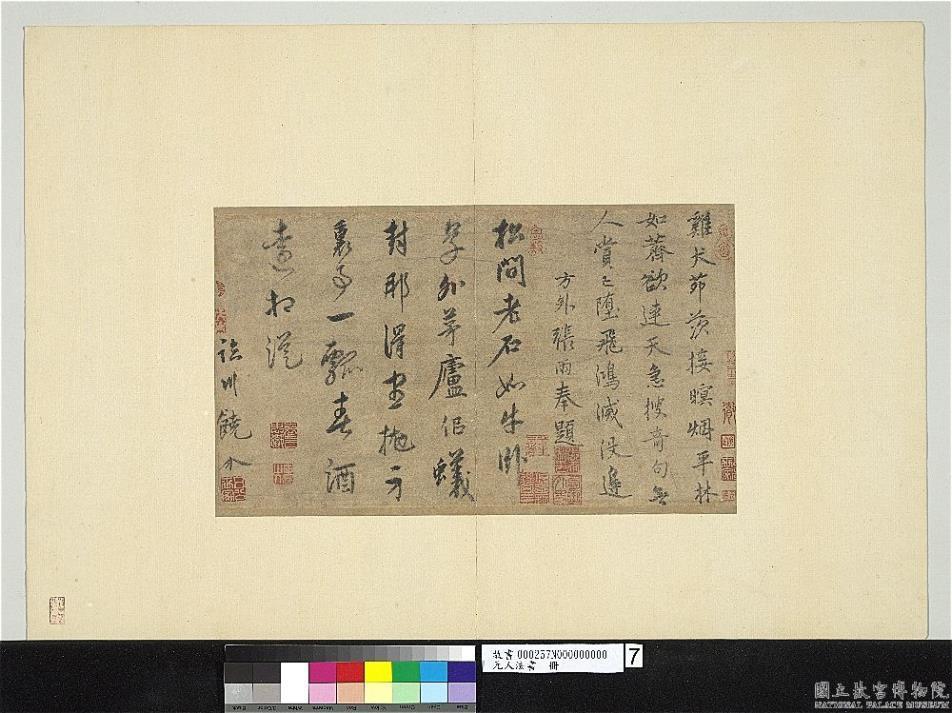 雞犬茆茨接暝烟平林
如薺欲連天急搜奇句無
人賞已墮飛鴻滅沒邊
方外張雨奉題
松間老石如牛臥
琴外茅廬侣蟻
封那得盡抛方
裏事一瓢春酒
相從
臨川饒介
故書000257N000000000
元人法書 冊
7
國立故宮博物院
NATIONAL PALACE MUSEUM